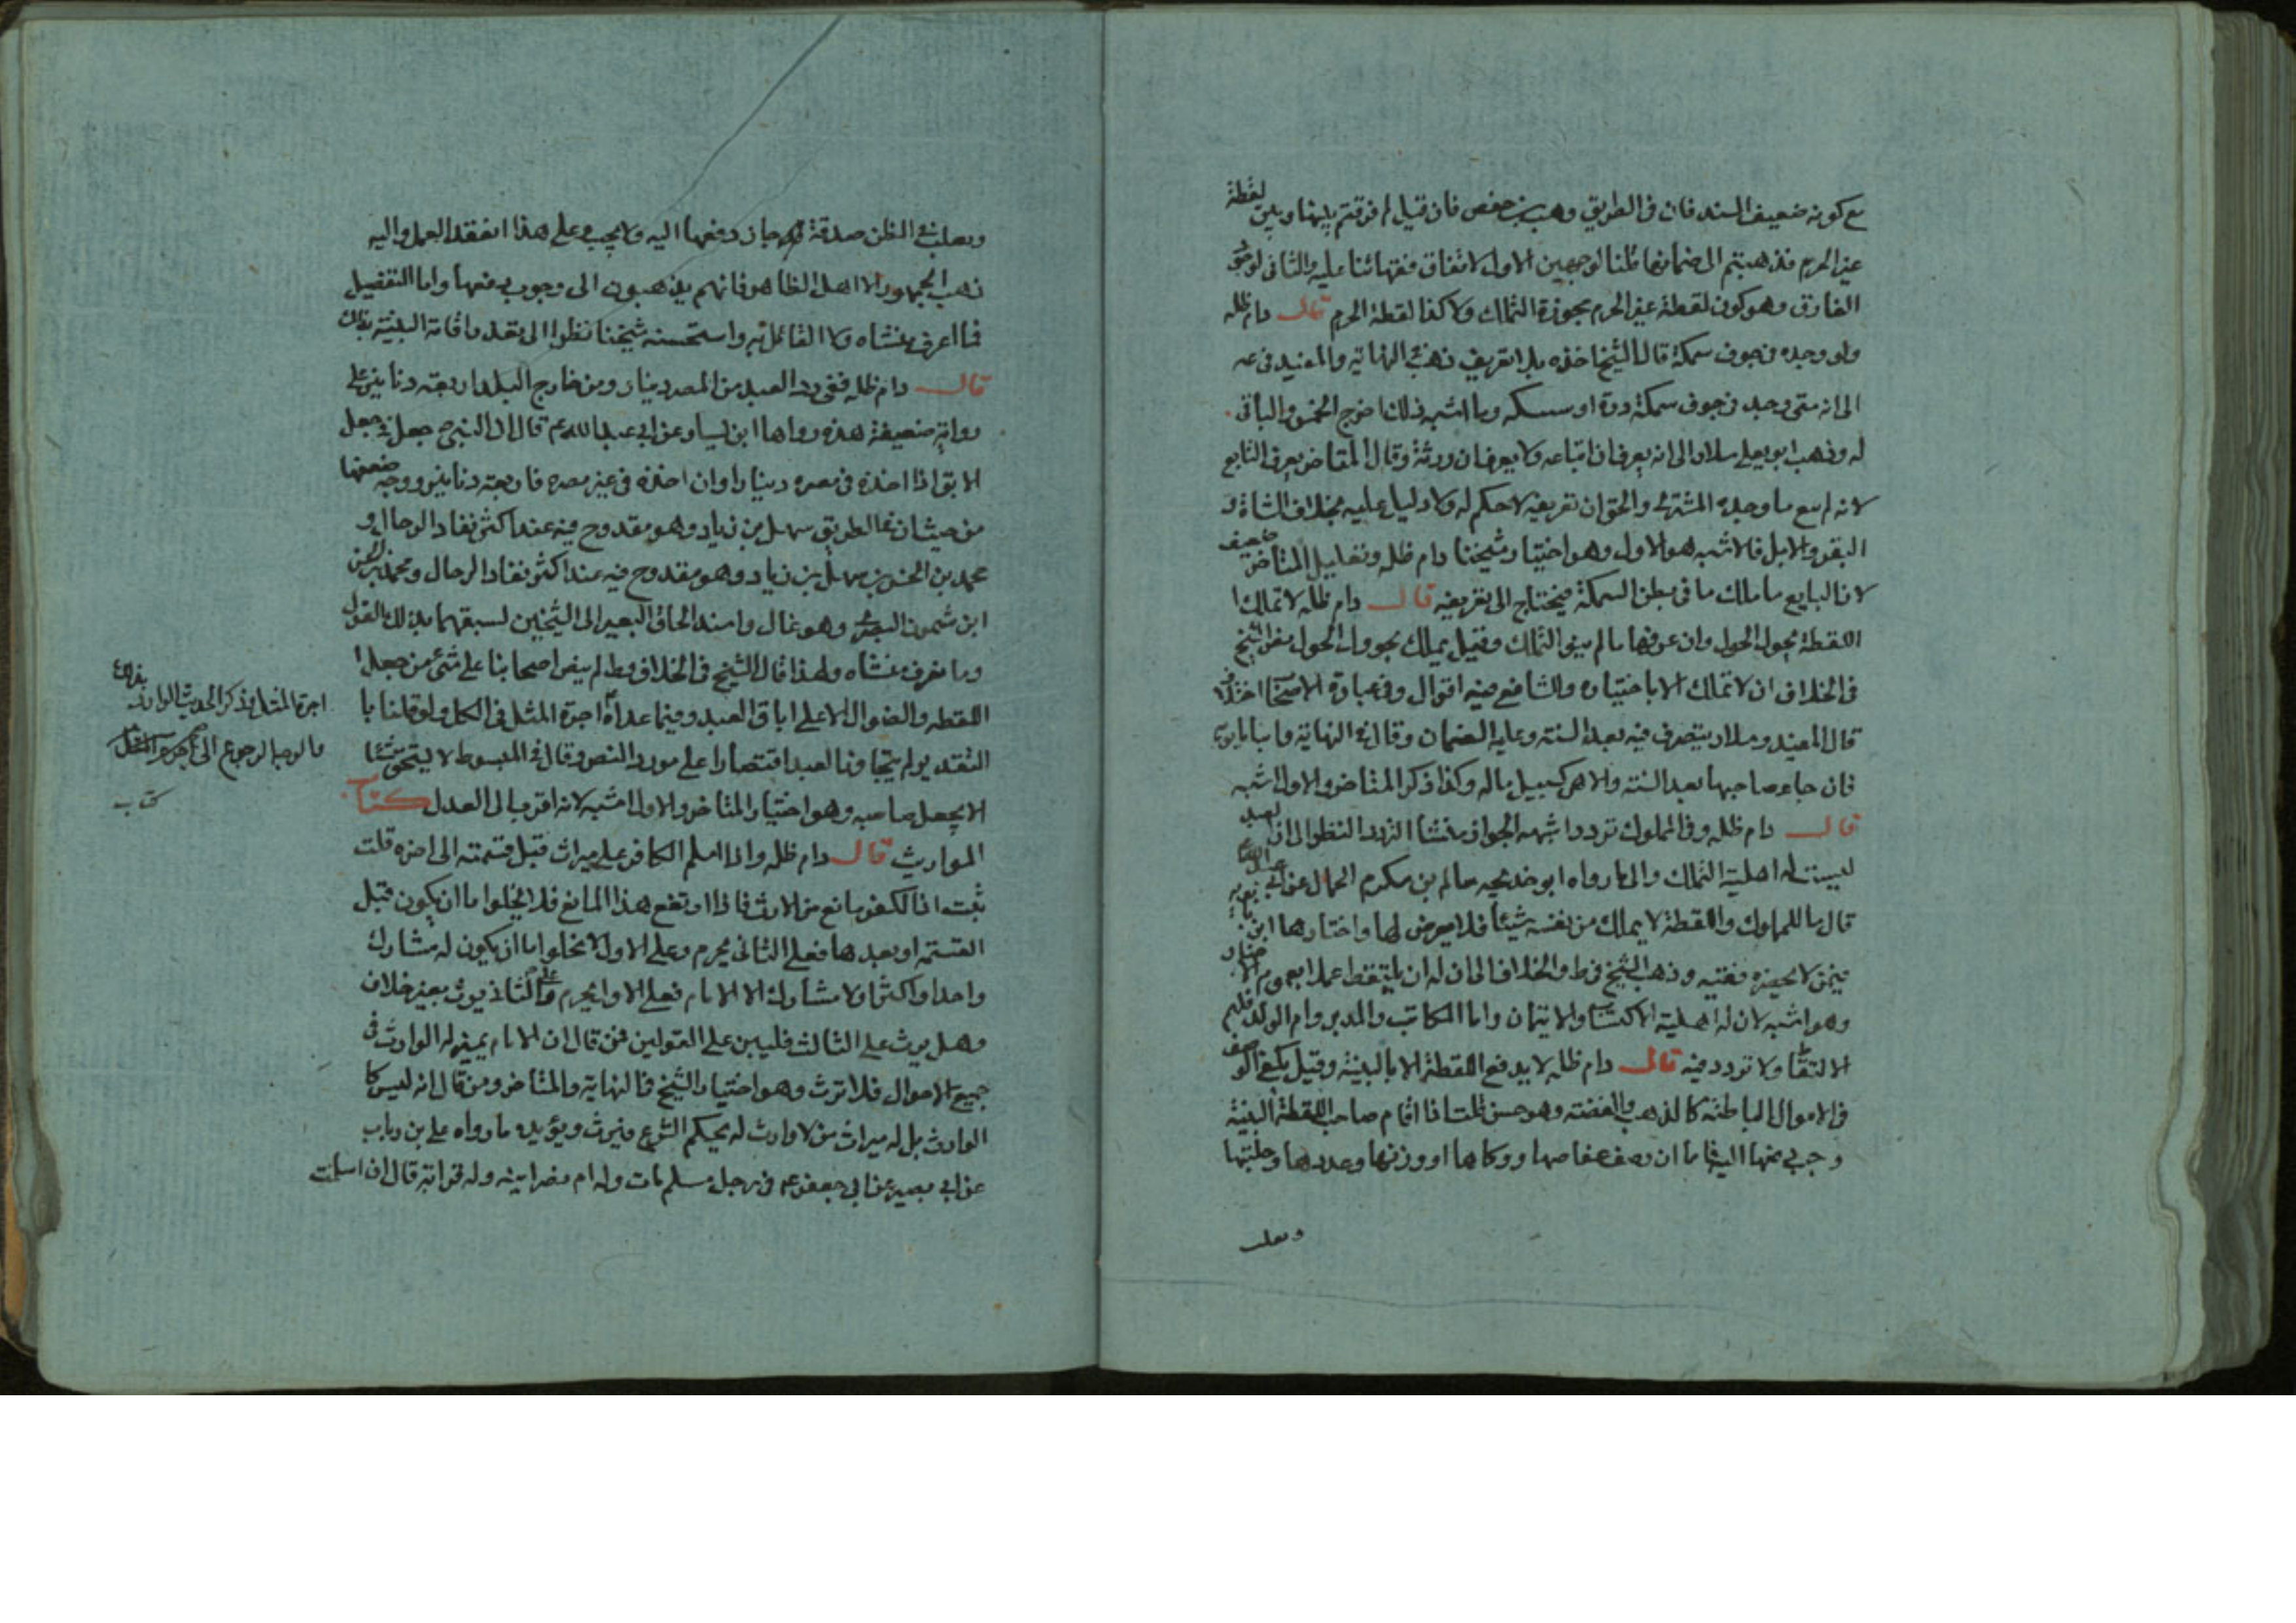 مع كونه ضعيف السند فان في الطريق وهب بن حفص فان قيل لم فرقتم بينها وبين لقطة
غير الحرم فذهبتم الى ضمانها قلنا لوجهين الاول لاتفاق فقهائنا عليه والثاني لوجود
الفارق وهو كون لقطة غير الحرم يجوز له التملك ولا كذا لقطة الحرم قال دام ظله
ولو وجده في جوف سمكة قال الشيخ اخذه بلا تعريف ذهب في النهاية والمفيد في عه
الى انه متى وجد في جوف سمكة درة او سبيكة وما اشبه ذلك اخرج الخمس والباقي
له وذهب ابو يعلى سلار الى انه يعرف ان ابتاعه ولا يعرف ان ورثه وقال المتاخر يعرف البايع
لانه لم يبع ما وجده المشتري والحق ان تعريفه لا حكم له ولا دليل عليه بخلاف الشاة و
البقر والابل فالاشبه هو الاول وهو اختيار شيخنا دام ظله وتعليل المتاخر ضعيف
لان البايع ما ملك ما في بطن السمكة فيحتاج الى تعريفه قال دام ظله لا تملك
اللقطة بحول الحول وان عرفها ما لم ينو التملك وقيل يملك بحوول الحول
في الخلاف ان لا تملك الا باختياره وللشافعي فيه اقوال وفي عبارة الاصحاب اختلاف
قال المفيد وسلار يتصرف فيه بعد السنة وعليه الضمان وقال في النهاية وابنا بابويه
فان جاء صاحبها بعد السنة والا هي كسبيل ماله وكذا ذكر المتاخر والاول اشبه
قال دام ظله وفي المملوك تردد اشبهه الجواز منشا التردد النظر الى ان العبد
ليست له اهلية التملك والى ما رواه ابو خديجه سالم بن مكرم الجمال عن ابي عبد الله
قال ما للمملوك واللقطة لا يملك من نفسه شيئا فلا يعرض لها واختارها ابن بابويه
فيمن لا يحضره فقيه وذهب الشيخ في ط والخلاف الى ان له ان يلتقط عملا بعموم الاخبار
وهو اشبه لان له اهلية الاكتساب والايتمان واما المكاتب والمدبر وام الولد فلهم
الالتقاط ولا تردد فيه قال دام ظله لا يدفع اللقطة الا بالبينة وقيل يكفي الوصف
في الاموال الباطنة كالذهب والفضة وهو حسن قلت اذا اقام صاحب اللقطة البينة
وجب دفعها اليه اما ان وصف عفاصها ووكاها او وزنها وعددها وحليتها
ويغلب
ويغلب في الظن صدقه جاز دفعها اليه ولا يجب وعلى هذا انعقد العمل واليه
ذهب الجمهور الا اهل الظاهر فانهم يذهبون الى وجوب دفعها واما التفصيل
فما اعرف منشاه ولا القائل به واستحسنه شيخنا نظرا الى تعذر اقامة البينة بذلك
قال دام ظله ففي رد العبد من المصر دينار ومن خارج البلد اربعة دنانير على
رواية ضعيفة هذه رواها ابن سيار عن ابي عبد الله عم قال ان النبي ص جعل في جعل
الابق اذا اخذه في مصره دينارا وان اخذه في غير مصره فاربعة دنانير ووجه ضعفها
من حيث ان في الطريق سهل بن زياد وهو مقدوح فيه عند اكثر نقاد الرجال و
محمد بن الحسن بن سهل بن زياد وهو مقدوح فيه عند اكثر نقاد الرجال ومحمد بن الحسن
ابن شمون البصري وهو غال واسند الحاق البعير الى الشيخين لسبقهما بذلك القول
وما نعرف منشاه ولهذا قال الشيخ في الخلاف وط لم ينص اصحابنا على شئ من جعل
اللقطه والضوال الا على اباق العبد وفيما عداه اجرة المثل في الكل ولو قلنا با
التقدير لم يتجاوزنا العبد اقتصارا على مورد النص وقال في المبسوط لا يستحق شيئا
الا بجعل صاحبه وهو اختيار المتاخر والاول اشبه لانه اقرب الى العدل كتاب
المواريث قال دام ظله واذا اسلم الكافر على ميراث قبل قسمته الى اخره قلت
ثبت ان الكفر مانع من الارث فاذا ارتفع هذا المانع فلا يخلوا اما ان يكون قبل
القسمة او بعدها فعلى الثاني يحرم وعلى الاول لا يخلوا اما ان يكون له مشارك
واحدا واكثر او لا مشارك الا الامام فعلى الاول يحرم وعلى الثاني يرث بغير خلاف
وهل يرث على الثالث فليبن على القولين فمن قال ان الامام بمنزلة الوارث في
جميع الاحوال فلا ترث وهو اختيار الشيخ في النهاية والمتاخر ومن قال انه ليس كا
الوارث بل له ميراث من لا وارث له بحكم الشرع فيرث ويؤيده ما رواه علي بن رباب
عن ابي بصير عن ابي جعفر عم في رجل مسلم مات وله ام نصرانيه وله قرابة قال ان اسلمت
اجرة المثل فذكر الحديث الوارد
ما لوجب الرجوع الى اجرة المثل